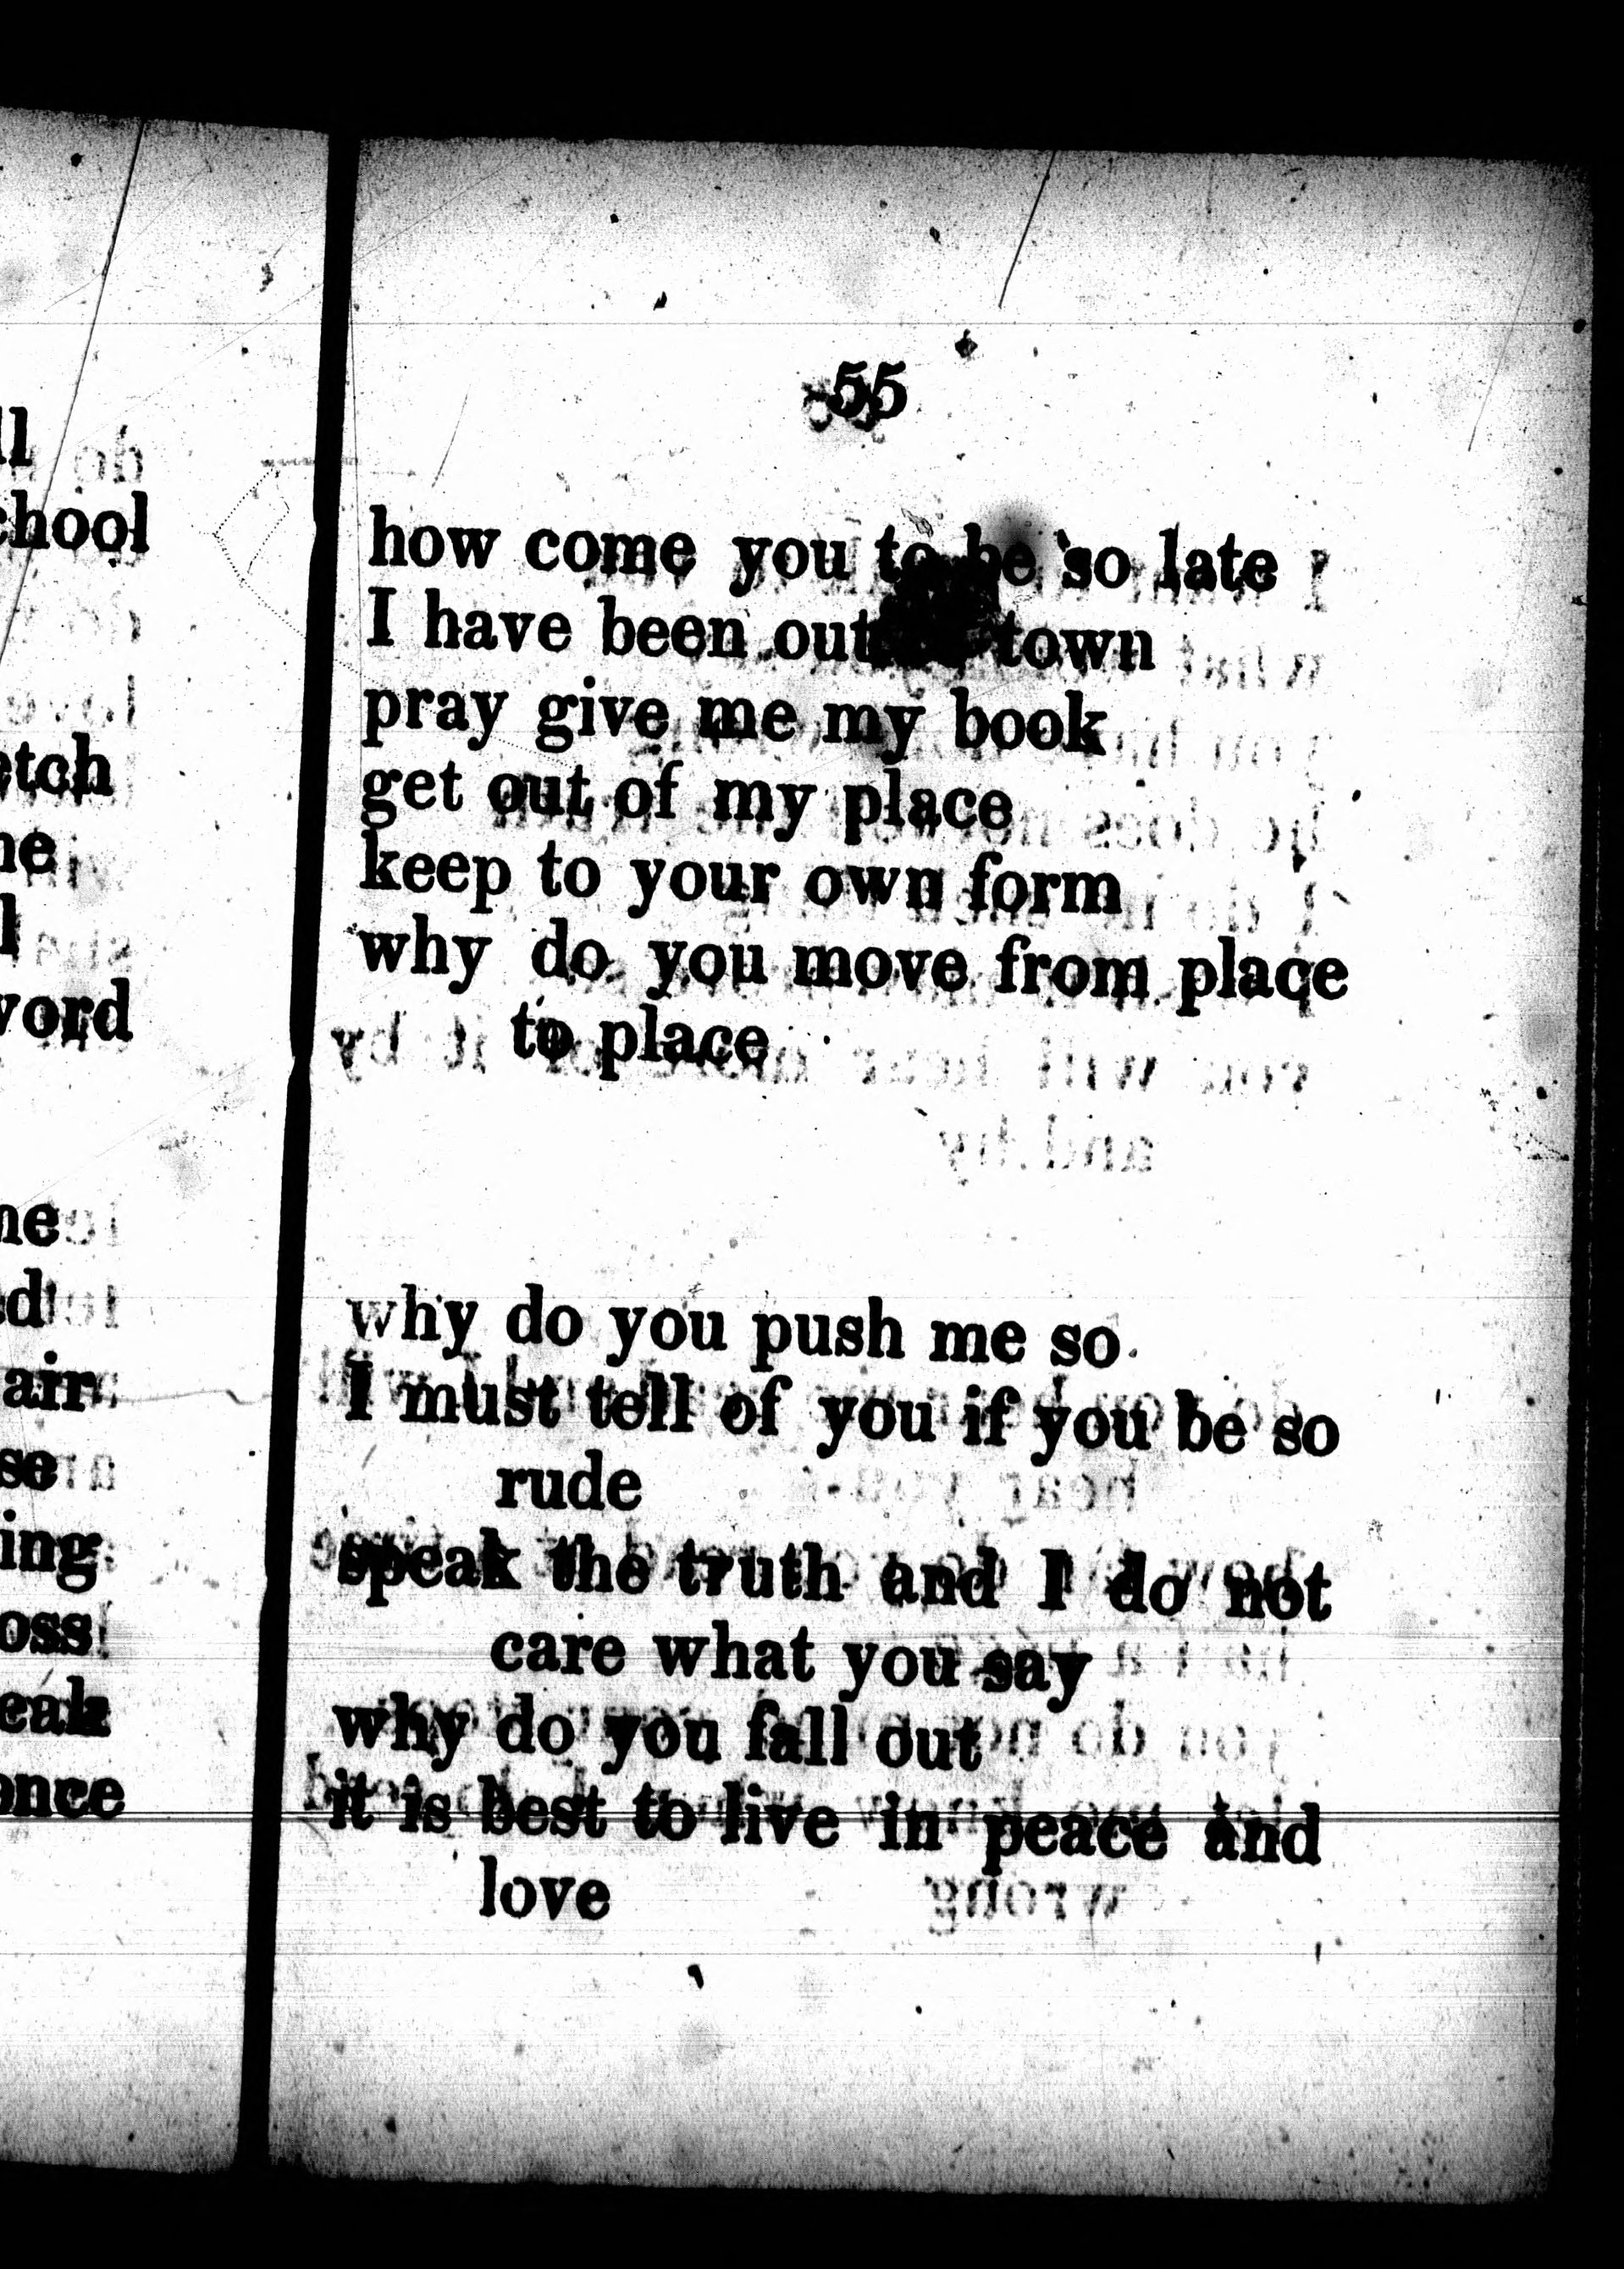 55
how come you to be so late
I have been out town
pray give me my book
get out of my place
keep to your own form
why do you move from place
to place
why do you push me so
I must tell of you if you be so
rude
speak the truth and I do not
care what you say
why do you fall out
it is best to live in peace and
love